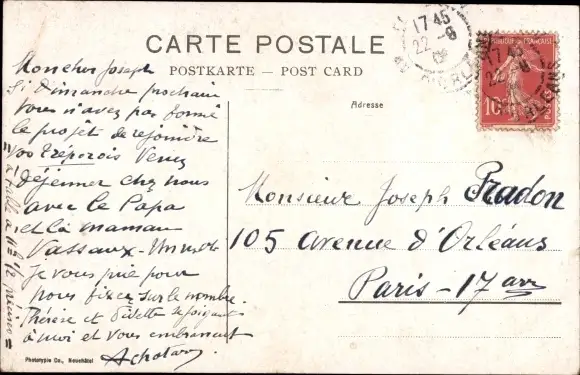 CARTE POSTALE
POSTKARTE — POST CARD
Adresse
17 45
22 - 8
RÉPUBLIQUE FRANÇAISE
10
Mon cher Joseph
Si dimanche prochain
vous n'avez pas formé
le projet de rejoindre
vos Tréporois Venez
déjeuner chez nous
avec le Papa
et la maman
Vassaux - Un mot
je vous prie pour
nous fixer sur le nombre.
Thérèse et Odette se joignent
à moi et vous embrassent
= à table à 11h 1/2 précises =
Monsieur Joseph Pradon
105 avenue d'Orléans
Paris - 17 arr
Phototypie Co., Neuchâtel